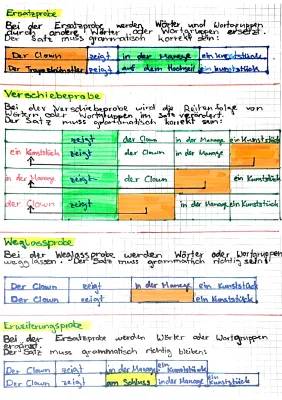 Ersatzprobe
Bei der Ersatzprobe werden Wörter und Wortgruppen
durch andere Wörter oder Wortgruppen ersetzt.
Der Satz muss grammatisch korrekt sein:
Der Clown zeigt in der Manege ein Kunststück
Der zeigt auf dem Hochseil ein Kunststück
Verschiebeprobe
Bei der Verschiebeprobe wird die Reihenfolge von
Wörtern oder Wortgruppen im Satz verändert.
Der Satz muss grammatisch korrekt sein:
zeigt der Clown in der Manege ein Kunststück
ein Kunststück zeigt der Clown in der Manege
in der Manege zeigt der Clown ein Kunststück
der Clown zeigt in der Manege ein Kunststück
Weglassprobe
Bei der Weglassprobe werden Wörter oder Wortgruppen
weggelassen. Der Satz muss grammatisch richtig sein:
Der Clown zeigt in der Manege ein Kunststück
Der Clown zeigt ein Kunststück
Erweiterungsprobe
Bei der Ersatzprobe werden Wörter oder Wortgruppen
Der Satz muss grammatisch richtig bleiben:
Der Clown zeigt in der Manege ein Kunststück
Der Clown zeigt am Schluss in der Manege ein Kunststück